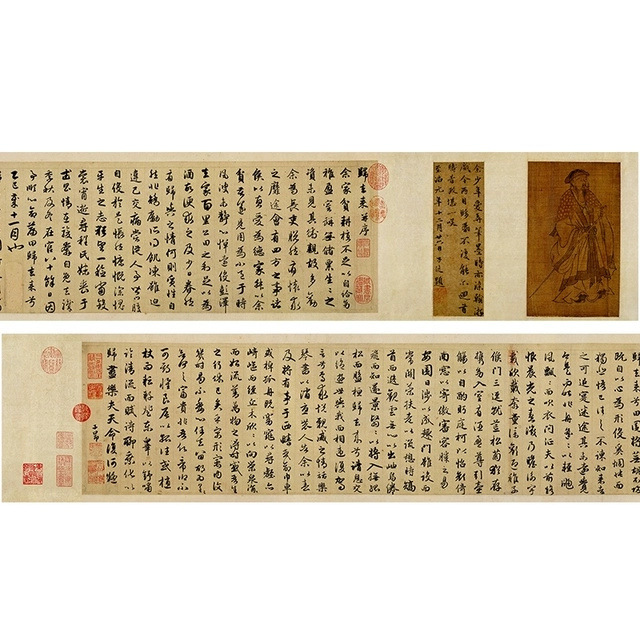 歸去來并序
余家貧耕植不足以自給幼
稚盈室缾無儲粟生生之
資未見其術親故多勸
余為長吏脫然有懷求
之靡途會有四方之事諸
侯以惠愛為德家叔以余
貧苦遂見用為小邑于時
風波未靜心憚遠役彭澤
去家百里公田之利足以為
酒故便求之及少日眷然
有歸與之情何則質性自
然非矯勵所得飢凍雖迫
違己交病嘗從人事皆口
腹自役於是悵然慷慨深愧
平生之志猶望一稔當斂
裳宵逝尋程氏妹喪于
武昌情在駿奔自免去職
仲秋至冬在官八十餘日因
事順心命篇曰歸去來兮
乙巳歲十一月也
既自以心為形役奚惆悵而
獨悲悟已往之不諫知來者
之可追寔迷途其未遠覺
今是而昨非舟遙遙以輕颺
風飄飄而吹衣問征夫以前路
恨晨光之熹微乃瞻衡宇
載欣載奔童僕歡迎稚子
候門三逕就荒松菊猶存
攜幼入室有酒盈罇引壺
觴以自酌眄庭柯以怡顏倚
南窗以寄傲審容膝之易
安園日涉以成趣門雖設而
常關策扶老以流憩時矯
首而遐觀雲無心以出岫鳥倦
飛而知還景翳翳以將入撫孤
松而盤桓歸去來兮請息交
以絕游世與我而相違復駕
言兮焉求悅親戚之情話樂
琴書以消憂農人告余以春
及將有事于西疇或命巾車
或棹孤舟既窈窕以尋壑亦
崎嶇而經丘木欣欣以向榮泉涓
涓而始流善萬物之得時感吾生
之行休已矣乎寓形宇內復
幾時曷不委心任去留胡為乎遑
遑欲何之富貴非吾願帝鄉不
可期懷良辰以孤往或植
杖而耘耔登東皋以舒嘯
臨清流而賦詩聊乘化以
歸盡樂夫天命復何疑
子昂